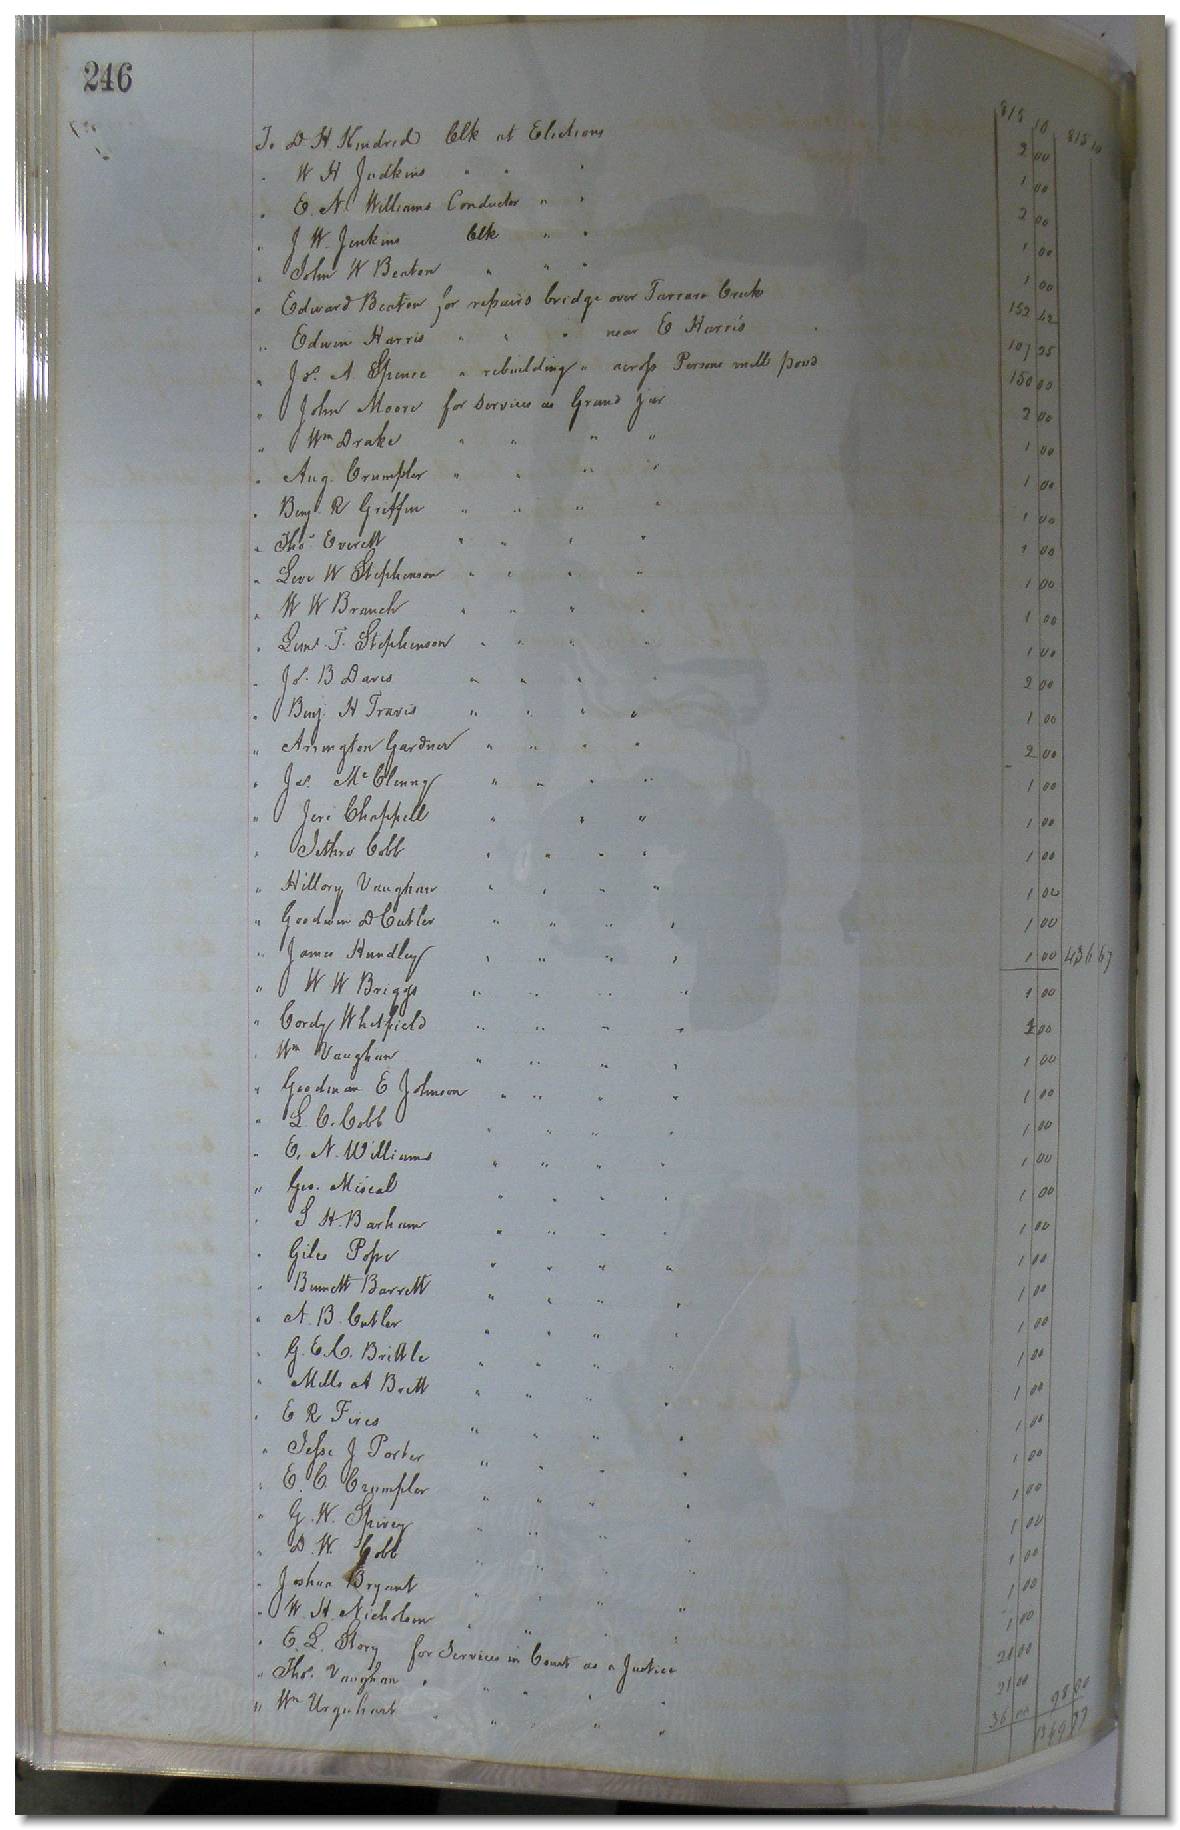 246
815 10 815 10
To D H Kindred Clk at Elections 2 00
" W H Judkins " " " 1 00
" E. N. Williams Conductor " " 2 00
" J W. Jenkins Clk " " 1 00
" John W Beaton " " " 1 00
" Edward Beaton for repairs bridge over Tarrara Creek 152 42
" Edwin Harris " " " near E Harris 107 25
" Js. A. Spence " rebuilding " across Persons mill pond 150 00
" John Moore for services as Grand jur 2 00
" Wm Drake " " " " 1 00
" Aug. Crumpler " " " " 1 00
" Benj. R Griffin " " " " 1 00
" Thos. Everett " " " " 1 00
" Levi W Stephenson " " " " 1 00
" W W Branch " " " " 1 00
" Lem. T. Stephenson " " " " 1 00
" Js. B Davis " " " " 2 00
" Benj. H Travis " " " " 1 00
" Arrington Gardner " " " " 2 00
" Js. McClenny " " " " 1 00
" Jere Chappell " " " 1 00
" Jethro Cobb " " " " 1 00
" Hillory Vaughan " " " " 1 00
" Goodwin D Cutler " " " " 1 00
" James Hundley " " " " 1 00 436 67
" W W Briggs " " " " 1 00
" Cordy Whitfield " " " " 1 00
" Wm Vaughan " " " " 1 00
" Goodman E Johnson " " " " 1 00
" L. C. Cobb " " " " 1 00
" E. N. Williams " " " " 1 00
" Geo. Miscal " " " " 1 00
" S H. Barham " " " " 1 00
" Giles Pope " " " " 1 00
" Bennett Barrett " " " " 1 00
" A. B. Cutler " " " " 1 00
" G. E. C. Brittle " " " " 1 00
" Mills A Britt " " " " 1 00
" E R Fires " " " " 1 00
" Jesse J Porter " " " " 1 00
" E. C. Crumpler " " " " 1 00
" G. W. Spivey " " " " 1 00
" D. W. Cobb " " " " 1 00
" Joshua Bryant " " " " 1 00
" W. H. Nicholson " " " " 1 00
" E. L. Story for Services in Court as a Justice 21 00
" Thos. Vaughan " " " " " 21 00
" Wm Urquhart " " " " " 36 00 98 00